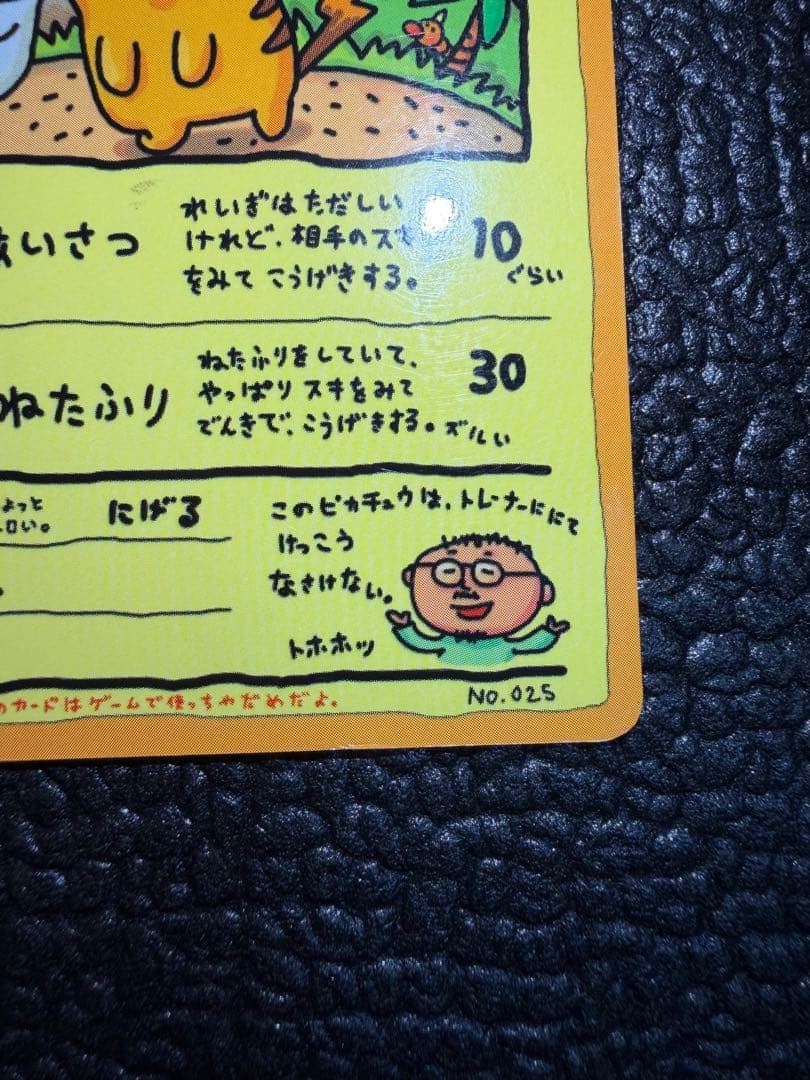 いさつ
れいぎはただしい
けれど、相手のス
をみて こうげきする。
10
ぐらい
ねたふり
ねたふりをしていて、
やっぱり スキをみて
でんきで、こうげきする。ズルい
30
ょっと
ロい。
にげる
このピカチュウは、トレーナーににて
けっこう
なさけない。
トホホッ
のカードはゲームで使っちゃだめだよ。
NO.025